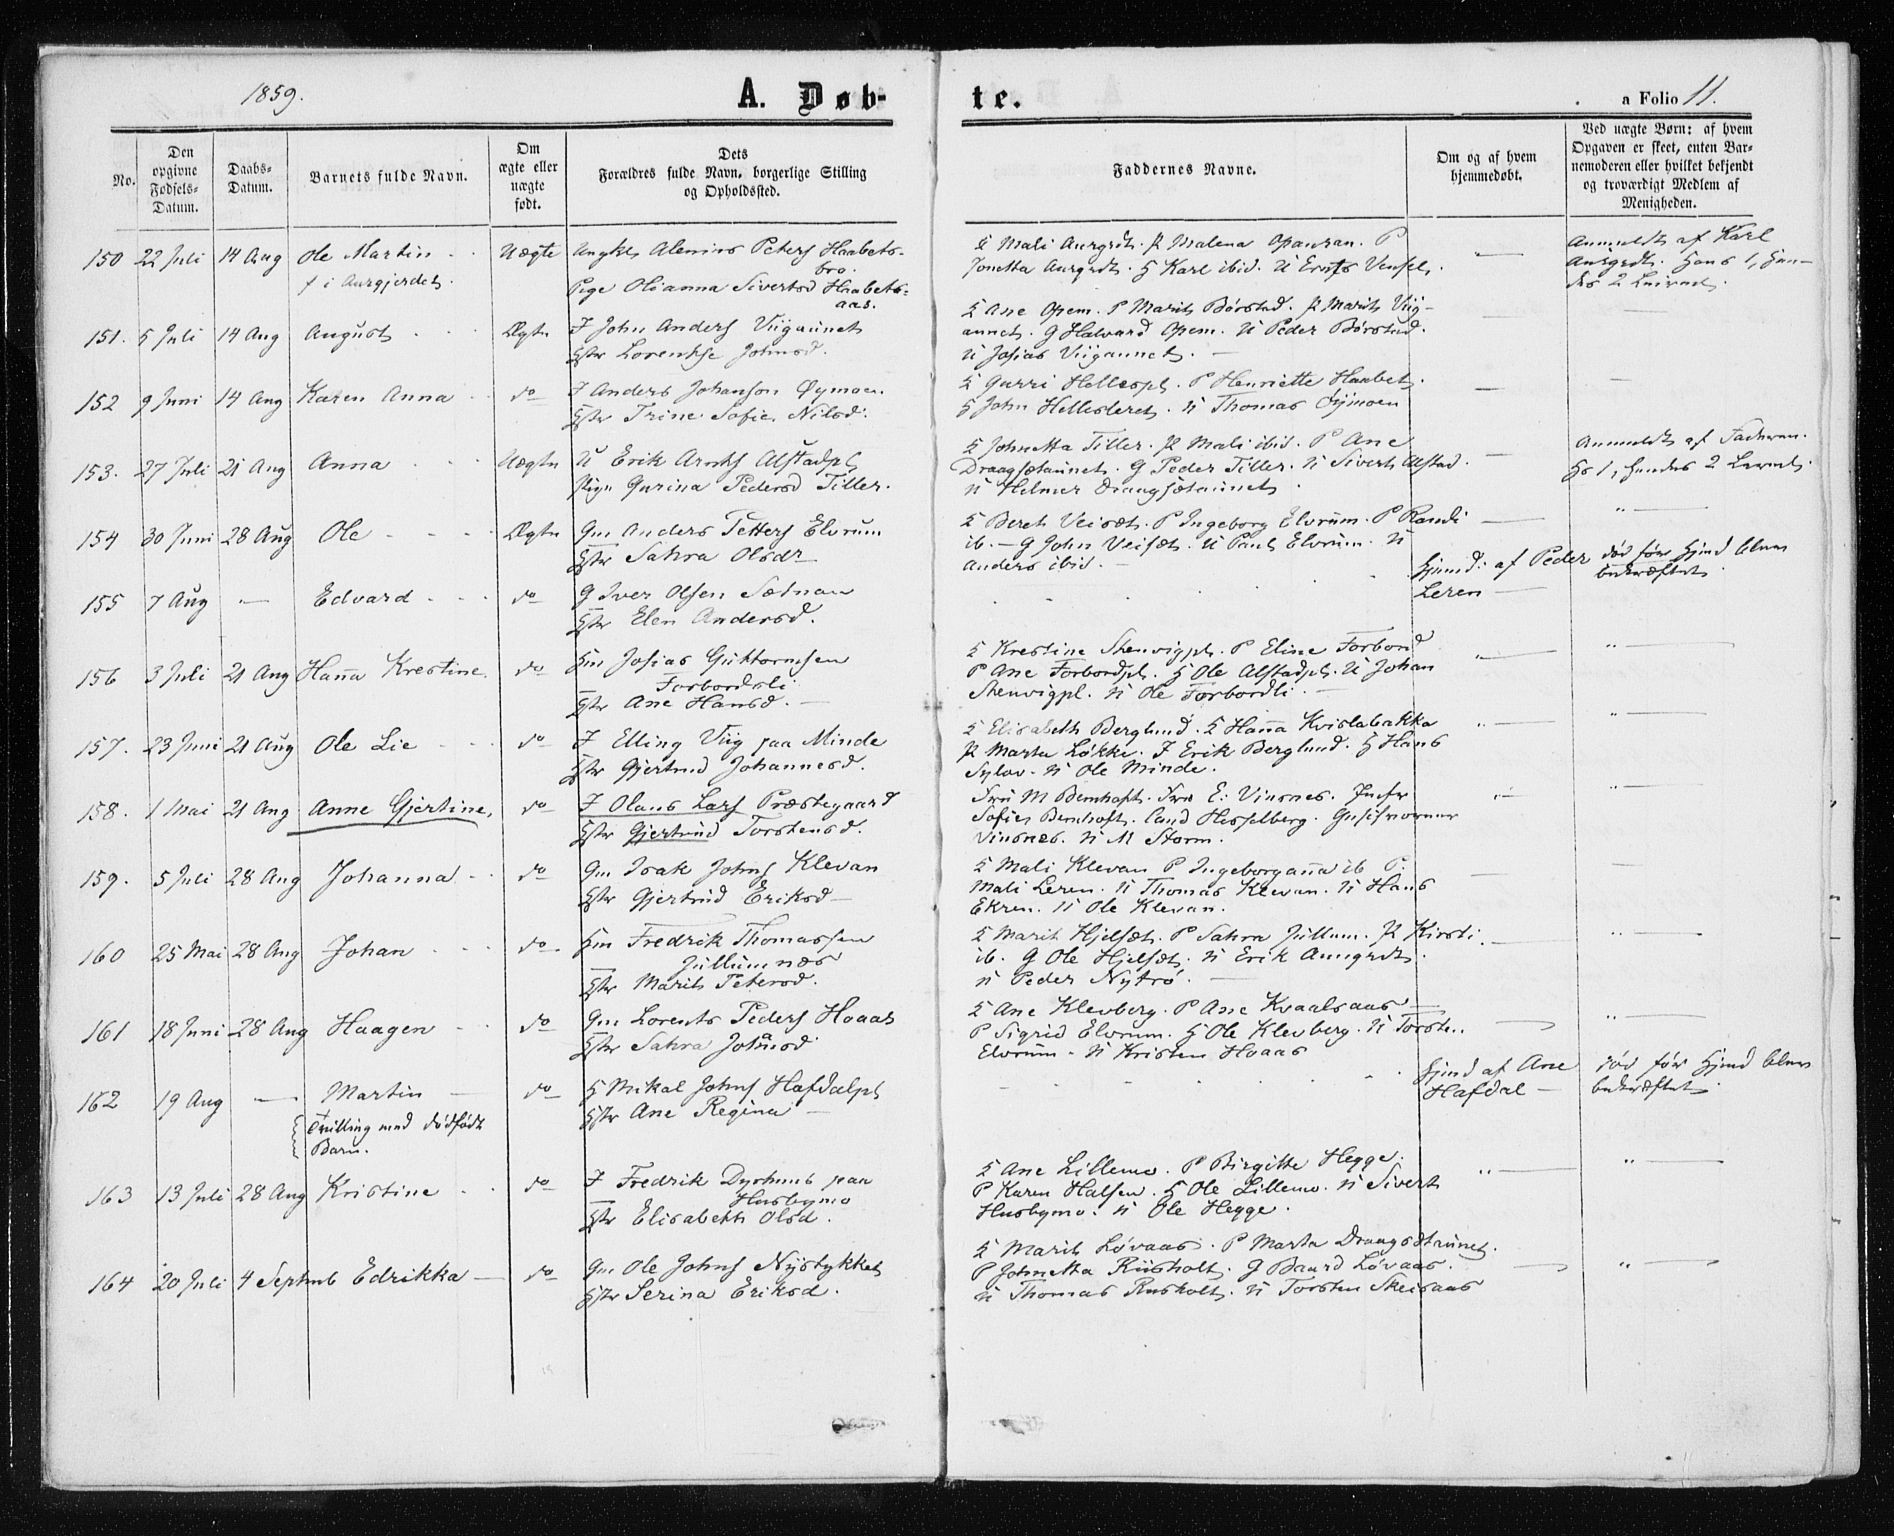 1859.
A. Døb-
te.
a Folio 11.
No.
Den
opgivne
Fødsels-
Datum.
Daabs-
Datum.
Barnets fulde Navn.
Om
ægte eller
uægte
født.
Dets
Forældres fulde Navn, borgerlige Stilling
og Opholdssted.
Faddernes Navne.
Om og af hvem
hjemmedøbt.
Ved uægte Børn: af hvem
Opgaven er skeet, enten Bar-
nemoderen eller hvilket bekjendt
og troværdigt Medlem af
Menigheden.
150 22 Juli 14 Aug Ole Martin Uægte Peters Haabets-
f i Aurgjerdet. bro.
Pige Olianna Sivertsd Haabets-
aas.
Mali Aurgrdt. Malena Opauran. P
Jonetta Aurgrdt. G Karl ibid. U
Anmeldt af Karl
Aurgrdt. Hans 1,
des 2 Leirmd.
151. 5 Juli 14 Aug August Ægte I John Anders Viigaunet
Hstr Lorentse Johnsd.
K Ane Opem. P Marit Børstad. P Marit Viig-
aunet. G Halvard Opem. U Peder Børstad.
U Josias Viigaunet.
152 9 Juni 14 Aug Karen Anna do I Anders Johanson Øymoen
Hstr Trine Sofie Nilsd.
K Gurri Hellespl. P Henriette Haabet.
G John Hellesleret. U Thomas Øymoen
153. 27 Juli 21 Aug Anna Uægte U Erik Alstadpl
Pige Gurina Pedersd Tiller.
K Johnetta Tiller. P Mali ibid. P Ane
Draagsetaunet. G Peder Tiller. U Sivert Alstad.
U Helmer Draagsetaunet
Anmeldt af Faderen.
Hs 1, hendes 2 Leirmd.
154 30 Juni 28 Aug Ole Ægte Gm Anders Petters Elvrum
Hstr Sahra Olsdr
K Beret Veisæt. P Ingeborg Elvrum. P Randi
ib. - G John Veisæt. U Paul Elvrum. U
Anders ibid.
155 7 Aug — Edvard do G Iver Olsen Sætnan
Hstr Elen Andersd.
Hjemd. af Peder
Leren
død før Hjmd blev
bekræftet.
156 3 Juli 21 Aug Hana Krestine do Hm Josias Guttormsen
Forbordsli
Hstr Ane Hansd.
K Krestine Stenvigpl. P Eline Forbord
P Ane Forbordpl. G Ole Alstadpl. U Johan
Stenvigpl. U Ole Forbordli.
157. 23 Juni 21 Aug Ole Lie do I Elling Viig paa Minde
Hstr Gjertrud Johannesd.
K Elisabeth Berglund. K Hana Kvislabakka
P Marta Løkke. I Erik Berglund. G Hans
U Ole Minde.
158. 1 Mai 21 Aug Anne Gjertine, do I Olaus Lars Præstegaard
Hstr Gjertrud Torstensd.
Fru M Bernhoft. Fru E: Vinsnes. Jmfr
Sofie Bernhoft. Cand Hesselberg.
Vinsnes. U M Storm.
159. 5 Juli 28 Aug Johanna do Gm Isak Johns Klevan
Hstr Gjertrud Eriksd
K Mali Klevan P Ingeborgana ib P:
Mali Leren. U Thomas Klevan. U Hans
Ekren. U Ole Klevan.
160 25 Mai 28 Aug Johan do Hm Fredrik Thomassen
Jullumnæs
Hstr Marit Petersd.
K Marit Hjelsæt. P Sahra Jullum. P Kirsti
ib. G Ole Hjelsæt. U Erik Aungrdt
U Peder Nytrø.
161 18 Juni 28 Aug Haagen do Gm Lorents Peders Hoaas
Hstr Sahra Johnsd
K Ane Klevberg. P Ane Kvaalsaas
P Sigrid Elvrum. G Ole Klevberg. U Torsten
Elvrum. U Kristen Hoaas
162 19 Aug — Martin do G Mikal Johns Hafdalpl
Tvilling med dødfødt Hstr Ane Regina
Barn.
Hjmd af Ane
Hafdal
død før Hjmd blev
bekræftet
163 13 Juli 28 Aug Kristine do I Fredrik Dyrhaug paa
Husbymo
Hstr Elisabeth Olsd.
K Ane Lillemo. P Birgitte Hegge.
P Karen Halsen. G Ole Lillemo. U Sivert
Husbymo. U Ole Hegge.
164 20 Juli 4 Septmb Edrikka do Gm Ole Johns Nystykket
Hstr Serina Eriksd.
K Marit Løvaas. P Marta Draagsetaunet.
P Johnetta Rusholt. G Baard Løvaas.
U Thomas Rusholt. U Torsten Skeisaas